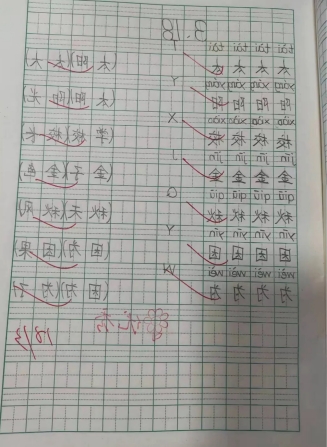 3.18
T
tài tài tài tài
太 太 太 太 (太阳)(太
Y
yáng yáng yáng yáng
阳 阳 阳 阳 (太阳)(阳光)
X
xiào xiào xiào xiào
校 校 校 校 (学校)(校长)
J
jīn jīn jīn jīn
金 金 金 金 (金子)(金色)
Q
qiū qiū qiū qiū
秋 秋 秋 秋 (秋天)(秋风)
Y
yīn yīn yīn yīn
因 因 因 因 (因为)(因果)
W
wéi wéi wéi wéi
为 为 为 为 (因为)(为
优秀
18/3